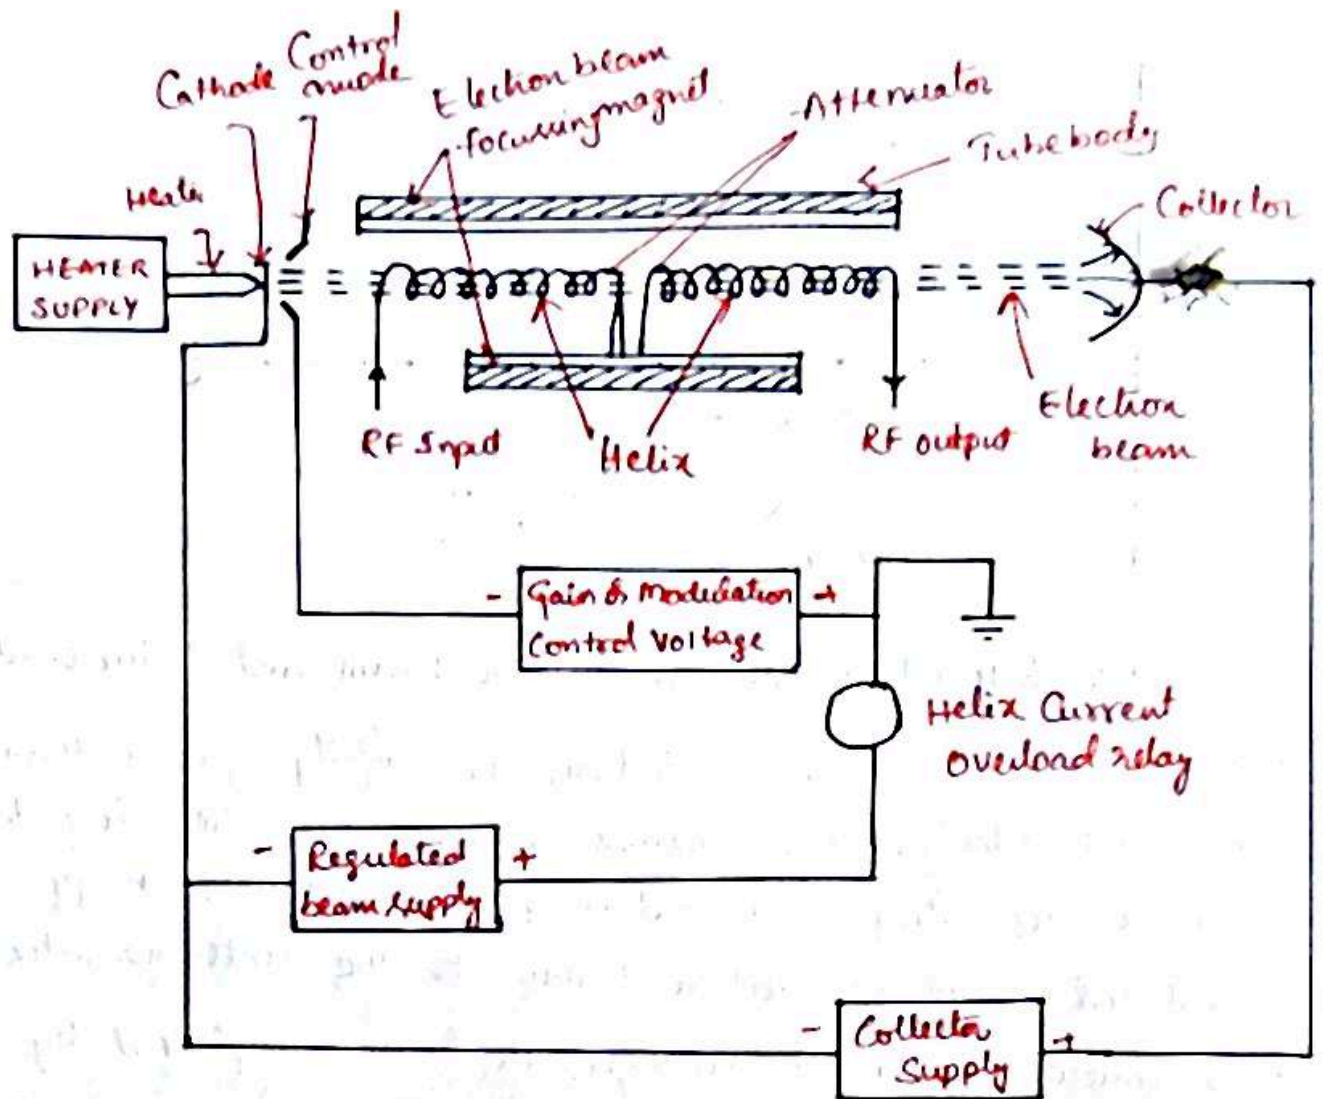 Cathode
Control
anode
Electron beam
focussing magnet
Attenuator
Tube body
Heater
Collector
HEATER
SUPPLY
RF Input
Helix
RF output
Electron
beam
- Gain & Modulation +
Control Voltage
Helix Current
Overload relay
- Regulated +
beam supply
- Collector +
Supply